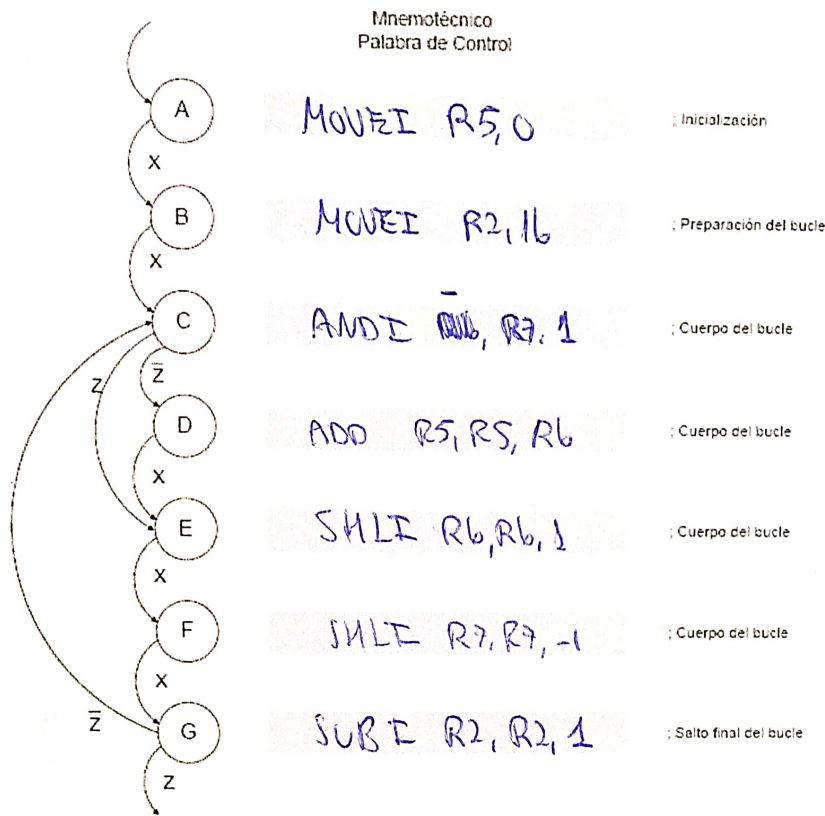 Mnemotécnico
Palabra de Control
A MOVEI R5, 0 ; Inicialización
X
B MOVEI R2, 16 ; Preparación del bucle
X
C ANDI -, R7, 1 ; Cuerpo del bucle
Z z̅
D ADD R5, R5, R6 ; Cuerpo del bucle
X
E SHLI R6, R6, 1 ; Cuerpo del bucle
X
F SHLI R7, R7, -1 ; Cuerpo del bucle
X
z̅ G SUBI R2, R2, 1 ; Salto final del bucle
Z